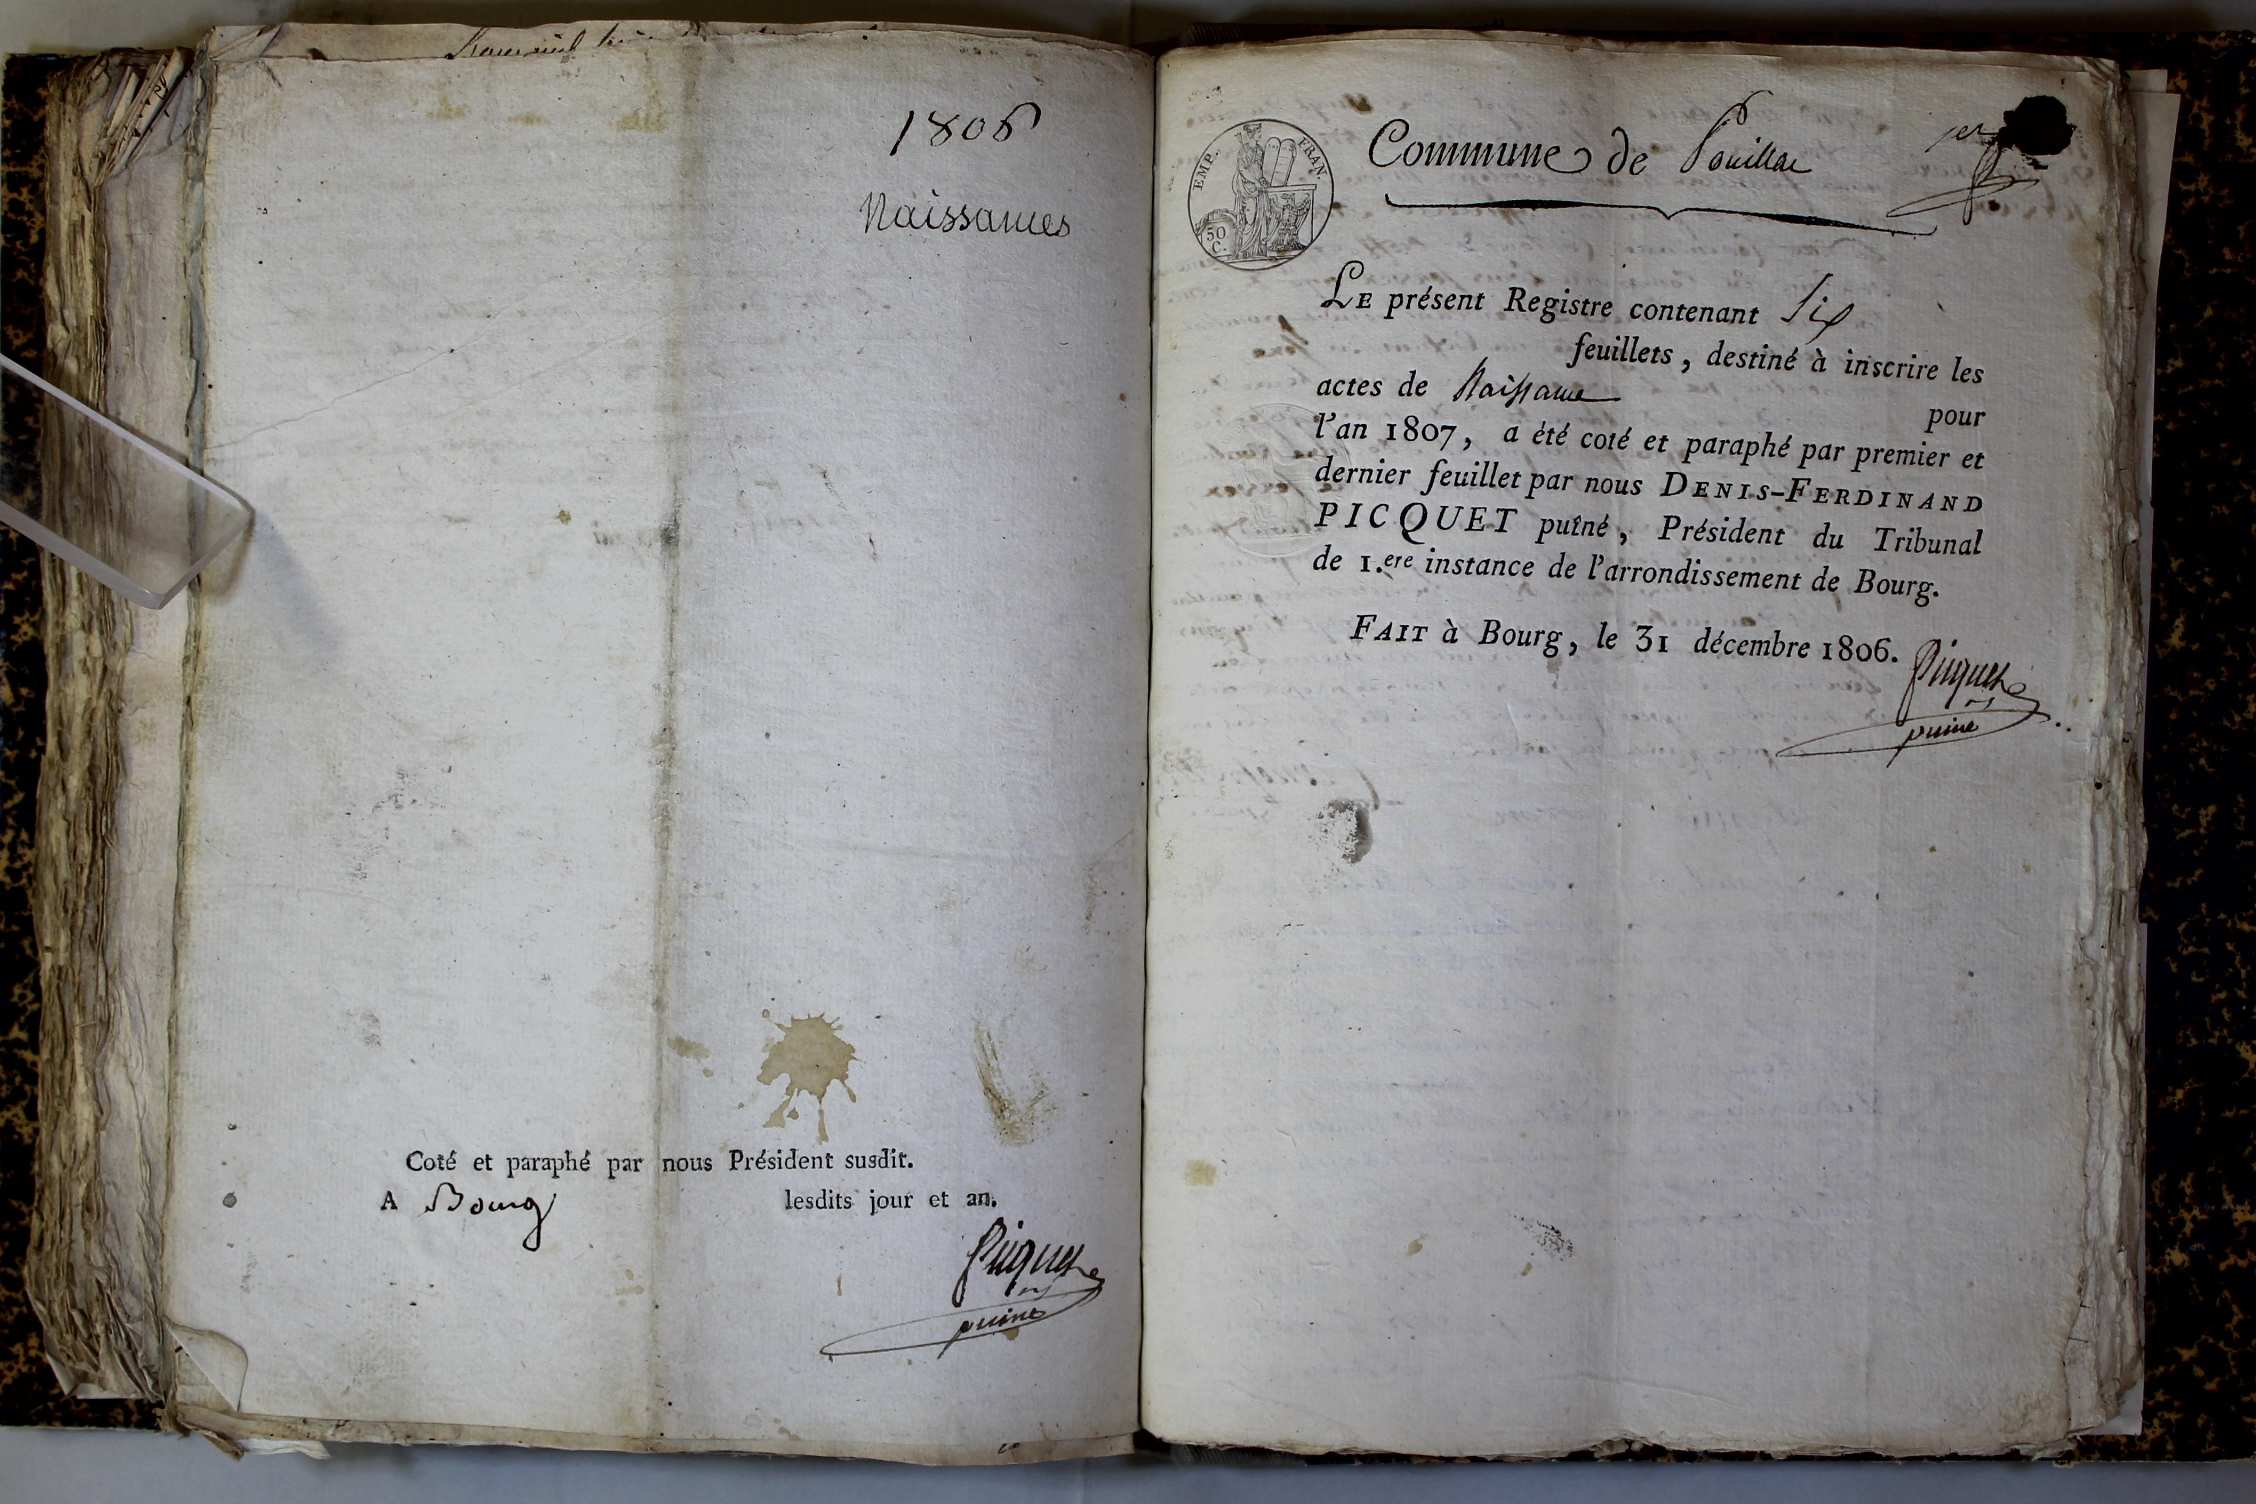 1806
Naissances
Coté et paraphé par nous Président susdit.
A Bourg lesdits jour et an.
Picquet
puiné
EMP. FRAN.
50
C.
Commune de Pouillat
LE présent Registre contenant Six
feuillets, destiné à inscrire les
actes de Naissance pour
l'an 1807, a été coté et paraphé par premier et
dernier feuillet par nous DENIS-FERDINAND
PICQUET puîné, Président du Tribunal
de 1.ere instance de l'arrondissement de Bourg.
FAIT à Bourg, le 31 décembre 1806.
Picquet
puiné